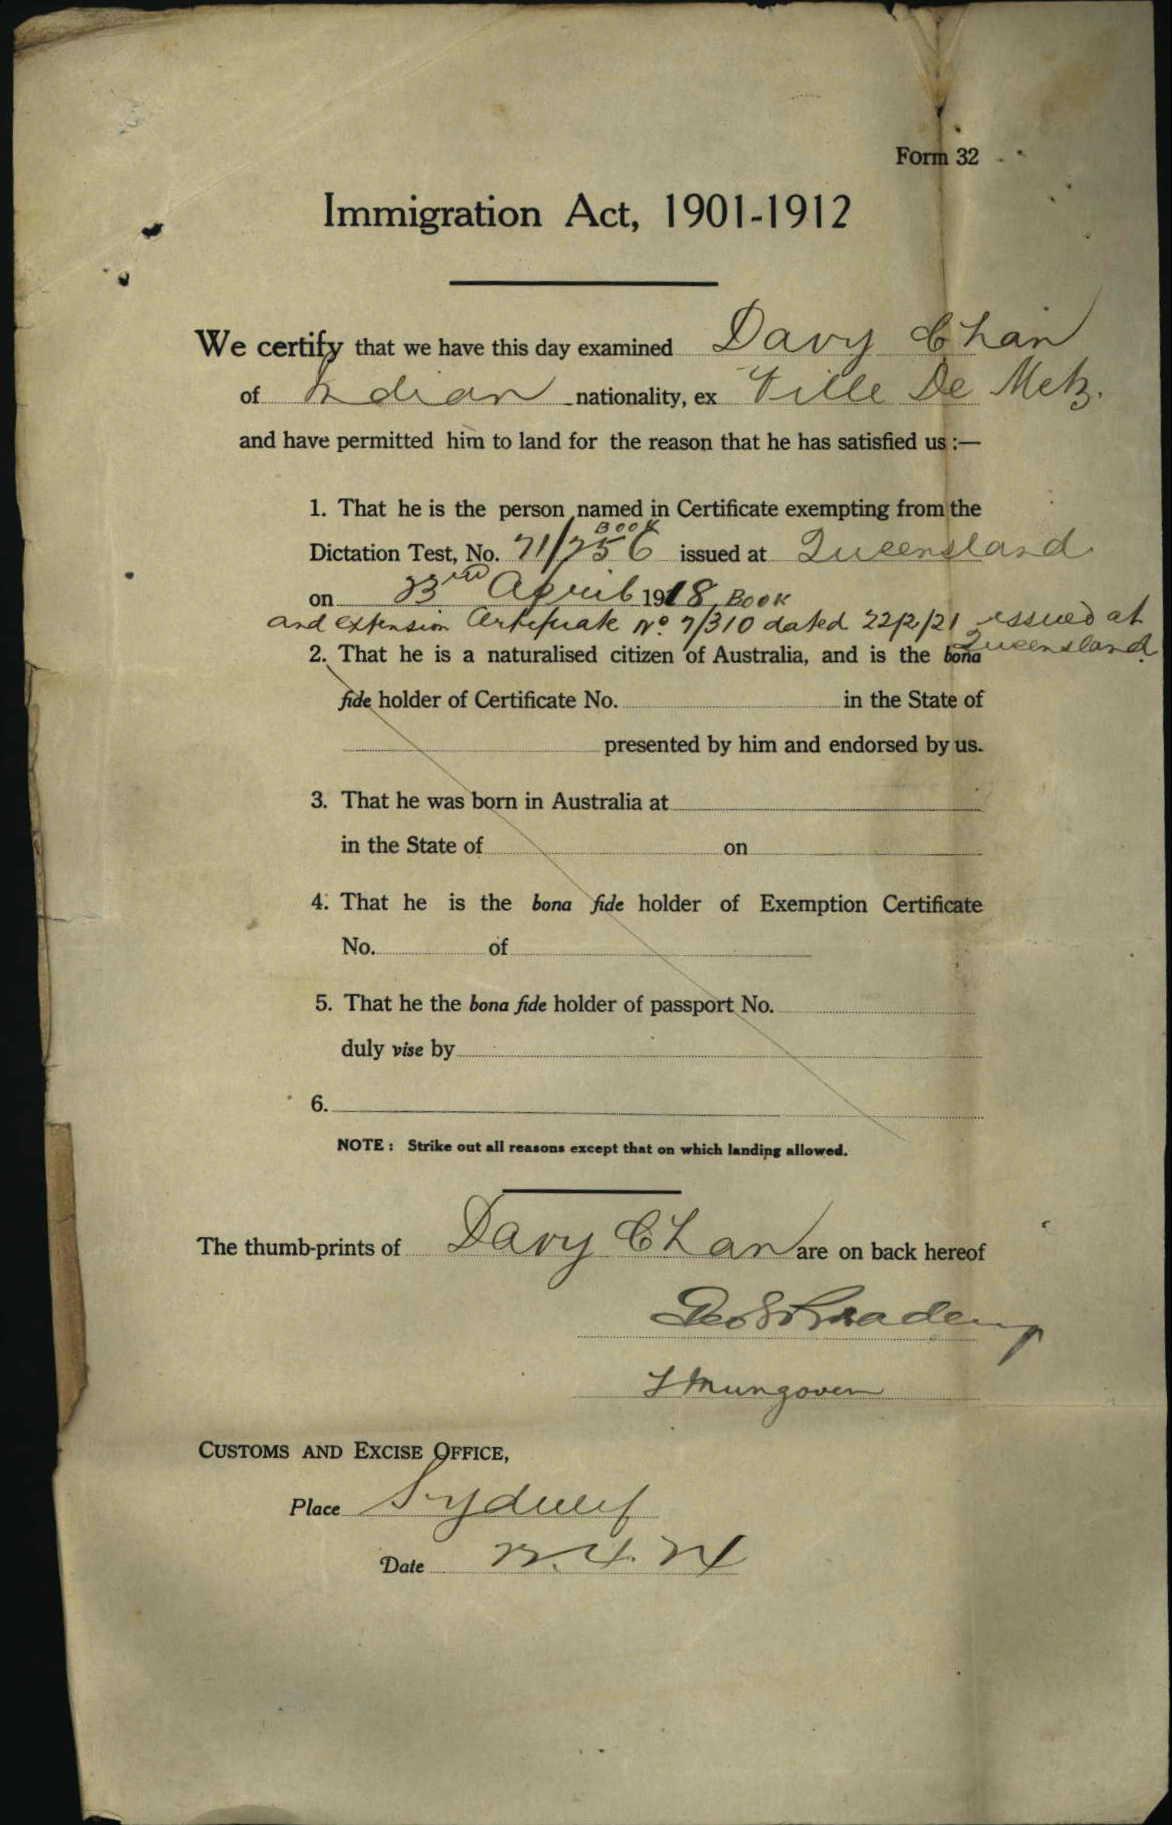 Form 32
Immigration Act, 1901-1912
We certify that we have this day examined Davy Chan
of Indian nationality, ex Ville De Metz.
and have permitted him to land for the reason that he has satisfied us :—
1. That he is the person named in Certificate exempting from the
BOOK
Dictation Test, No. 71/256 issued at Queensland
on 23rd April 1918 BOOK
and extension Certificate No. 7/310 dated 22/2/21 issued at
Queensland
2. That he is a naturalised citizen of Australia, and is the bona
fide holder of Certificate No. in the State of
presented by him and endorsed by us.
3. That he was born in Australia at
in the State of on
4. That he is the bona fide holder of Exemption Certificate
No. of
5. That he the bona fide holder of passport No.
duly vise by
6.
NOTE : Strike out all reasons except that on which landing allowed.
The thumb-prints of Davy Chan are on back hereof
Mungoven
CUSTOMS AND EXCISE OFFICE,
Place Sydney
Date